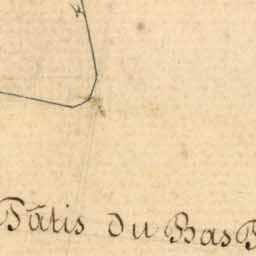 Pâtis Du Bas